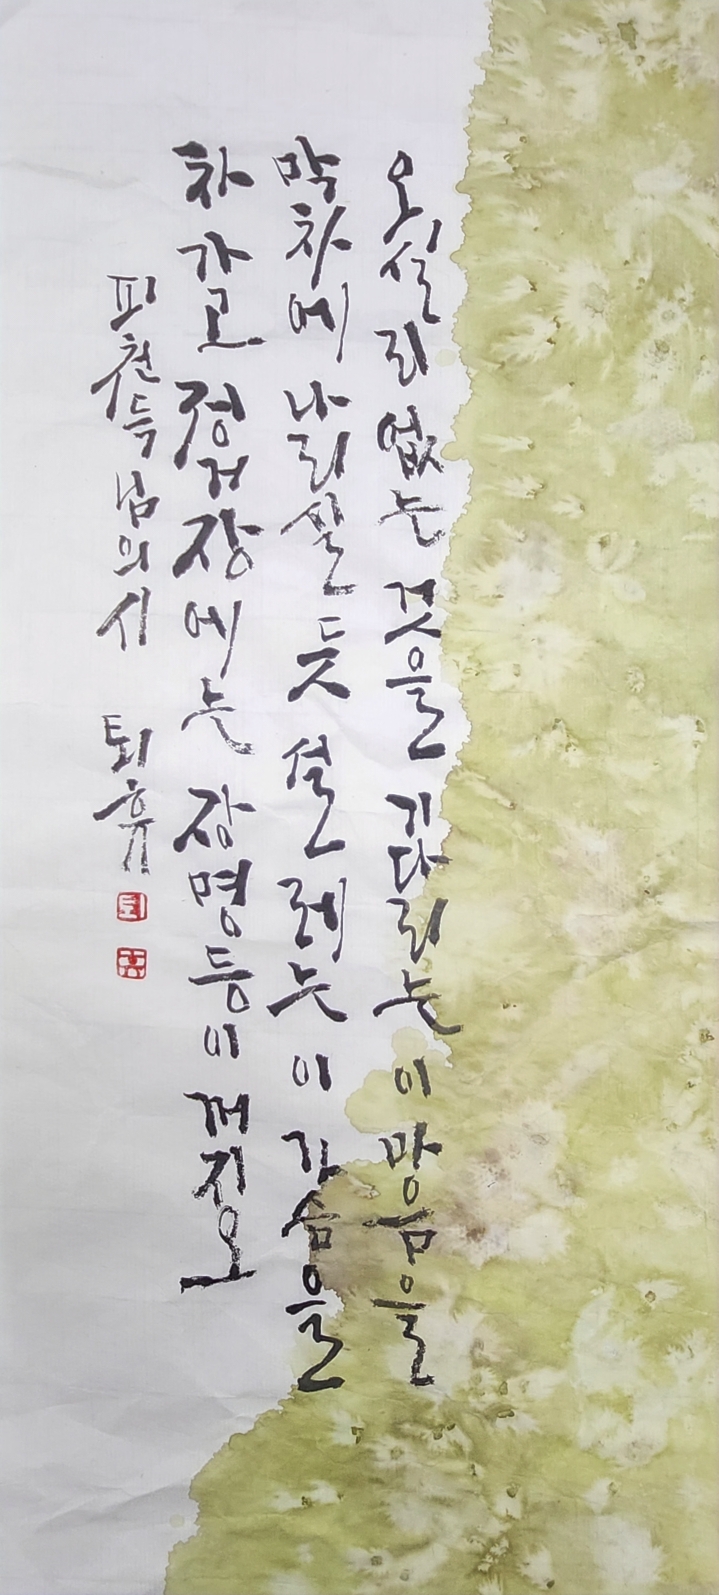 오실 리 없는 것을 기다리는 이 마음을
막차에 나리실 듯 설레는 이 가슴을
차 가고 정거장에는 장명등이 꺼지오
피천득 님의 시 퇴휴